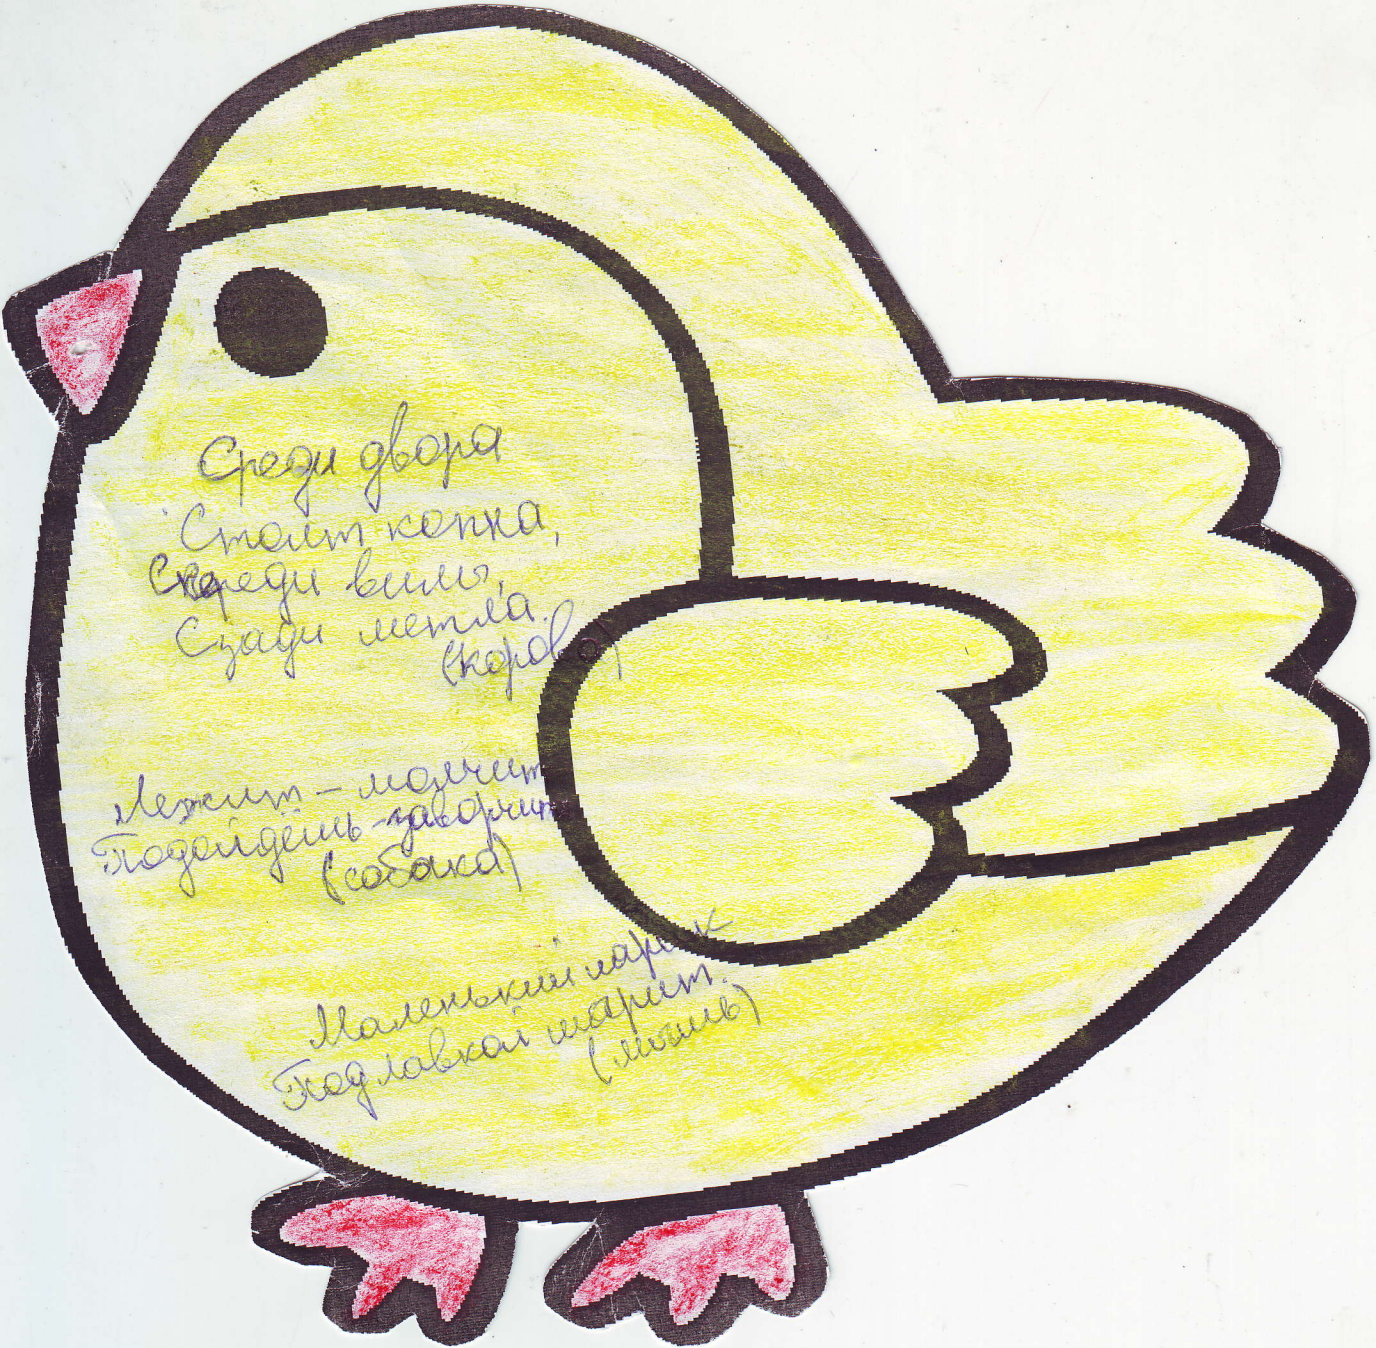 Среди двора
Стоит копна,
Спереди вилы,
Сзади метла.
(корова)
Лежит – молчит
Подойдёшь – заворчит
(собака)
Маленький шарик
Под лавкой шарит.
(мышь)